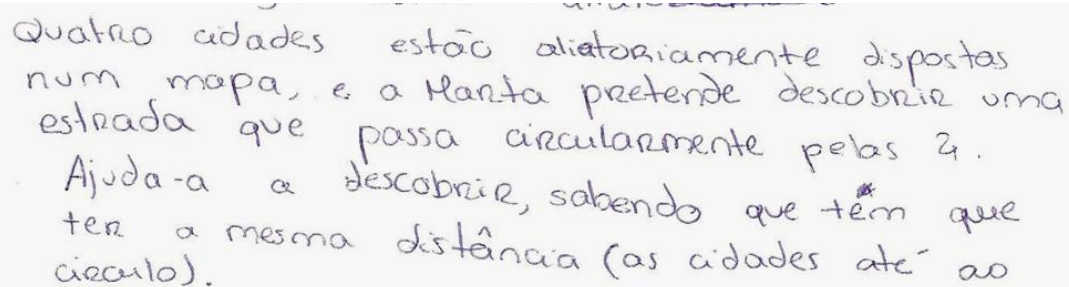 Quatro cidades estão aliatoriamente dispostas
num mapa, e a Marta pretende descobrir uma
estrada que passa circularmente pelas 4.
Ajuda-a a descobrir, sabendo que têm que
ter a mesma distância (as cidades até ao
circulo).